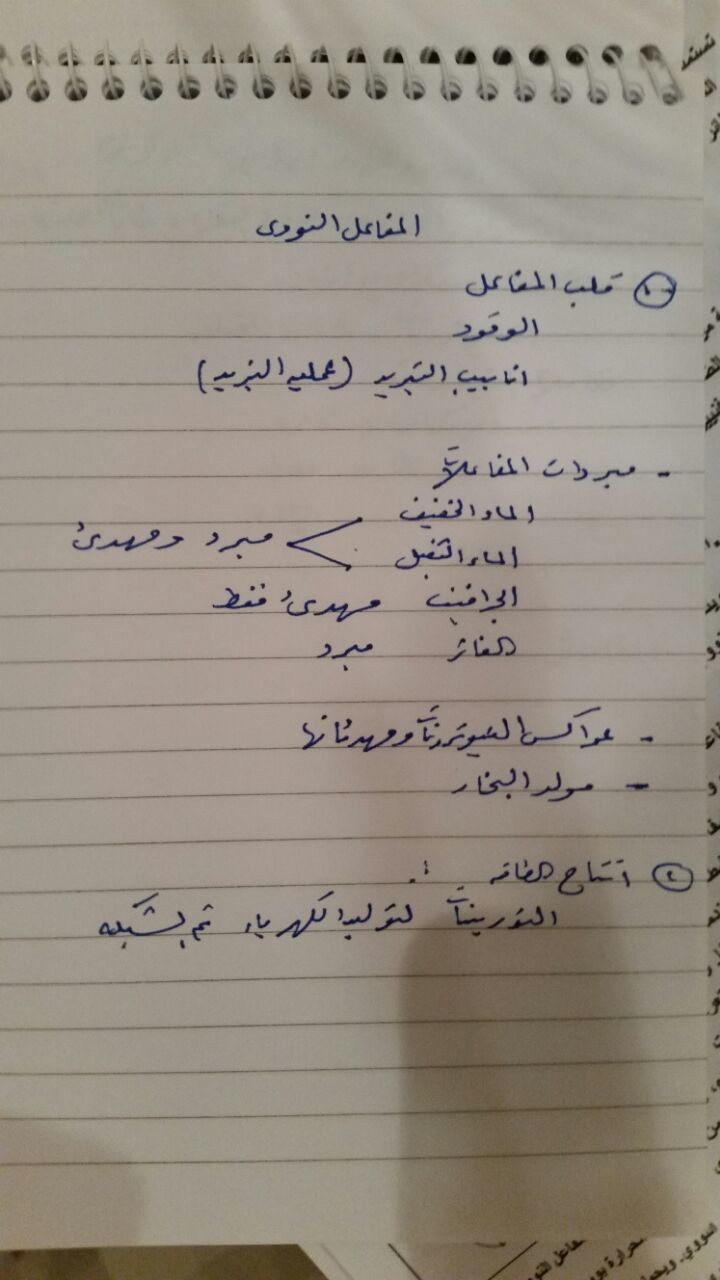 المفاعل النووى
١- قلب المفاعل
الوقود
انابيب التبريد (عمليه التبريد)
- مبردات المفاعلات
الماء الخفيف
الماء الثقيل > مبرد ومهدئ
الجرافيت مهدئ فقط
الغاز مبرد
- عواكس النيوترونات ومهدئاتها
- مولد البخار
٢ انتاج الطاقه :
التوربينات لتوليد الكهرباء ثم الشبكه